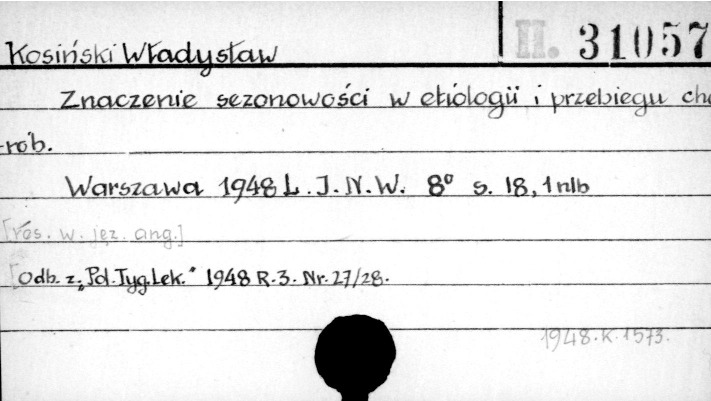 II. 31057
Kosiński Władysław
Znaczenie sezonowości w etiologii i przebiegu cho
-rób.
Warszawa 1948 L. I. N. W. 8° s. 18, 1 nlb
[res. w. jęz. ang.]
[Odb. z: „Pol. Tyg. Lek." 1948 R. 3. Nr. 27/28.
1948. K. 1573.